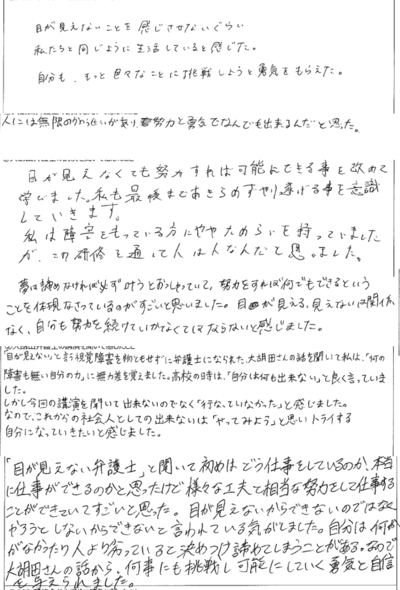 目が見えないことを感じさせないぐらい
私たちと同じように生活していると感じた。
自分も、もっと色々なことに挑戦しようと勇気をもらえた。
人には無限の があり、努力と勇気でなんでも出来るんだと思った。
目が見えなくても努力すれば可能にできる事を改めて
学びました。私も最後まであきらめずやり遂げる事を意識
していきます。
私は障害をもっている方にややためらいを持っていました
が、この研修を通して人は人なんだと思いました。
夢は諦めなければ必ず叶うとおっしゃっていて、努力をすれば何でもできるという
ことを体現なさっているのがすごいと思いました。目が見える、見えないは関係
なく、自分も努力を続けていかなくてはならないと感じました。
「目が見えない」と言う視覚障害を物ともせずに弁護士になられた、大胡田さんの話を聞いて私は、「何の
障害も無い自分の力」に無力差を覚えました。高校の時は、「自分は何も出来ない」と良く言っていま
した。
しかし今回の講演を聞いて出来ないのでなく「行なっていなかった」と感じました。
なので、これからの社会人としての出来ないは「やってみよう」と思いトライする
自分になっていきたいと感じました。
「目が見えない弁護士」と聞いて初めはどう仕事をしているのか、本当
に仕事ができるのかと思ったけど様々な工夫と相当な努力をして仕事する
ことができていてすごいと思った。目が見えないからできないのではなく
やろうとしないからできないと言われている気がしました。自分は何か
がなかったり人より劣っていると決めつけ諦めてしまうことがある。なので
大胡田さんの話から、何事にも挑戦し可能にしていく勇気と自信
を与えられました。